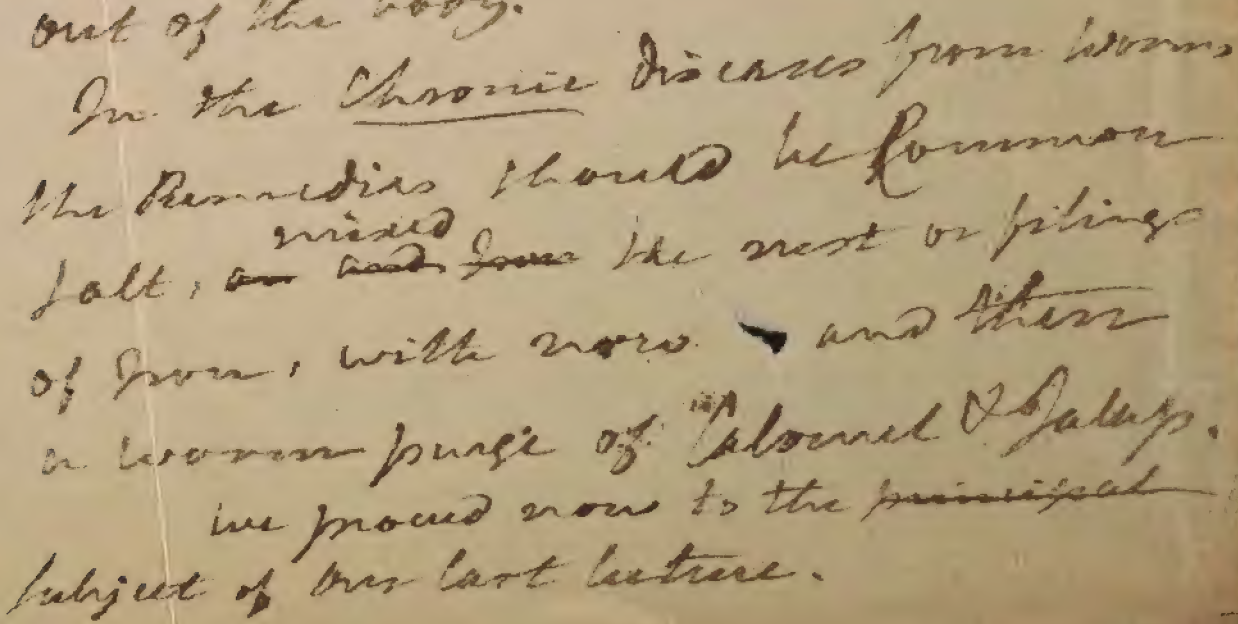 out of the body.
In the Chronic diseases from worms
the Remedies should be Common
mixed
salt, or and Iron the rust or filings
of Iron, with now and then
a worm purge of Calomel & Jalap.
we proceed now to the principal
subject of our last lecture.